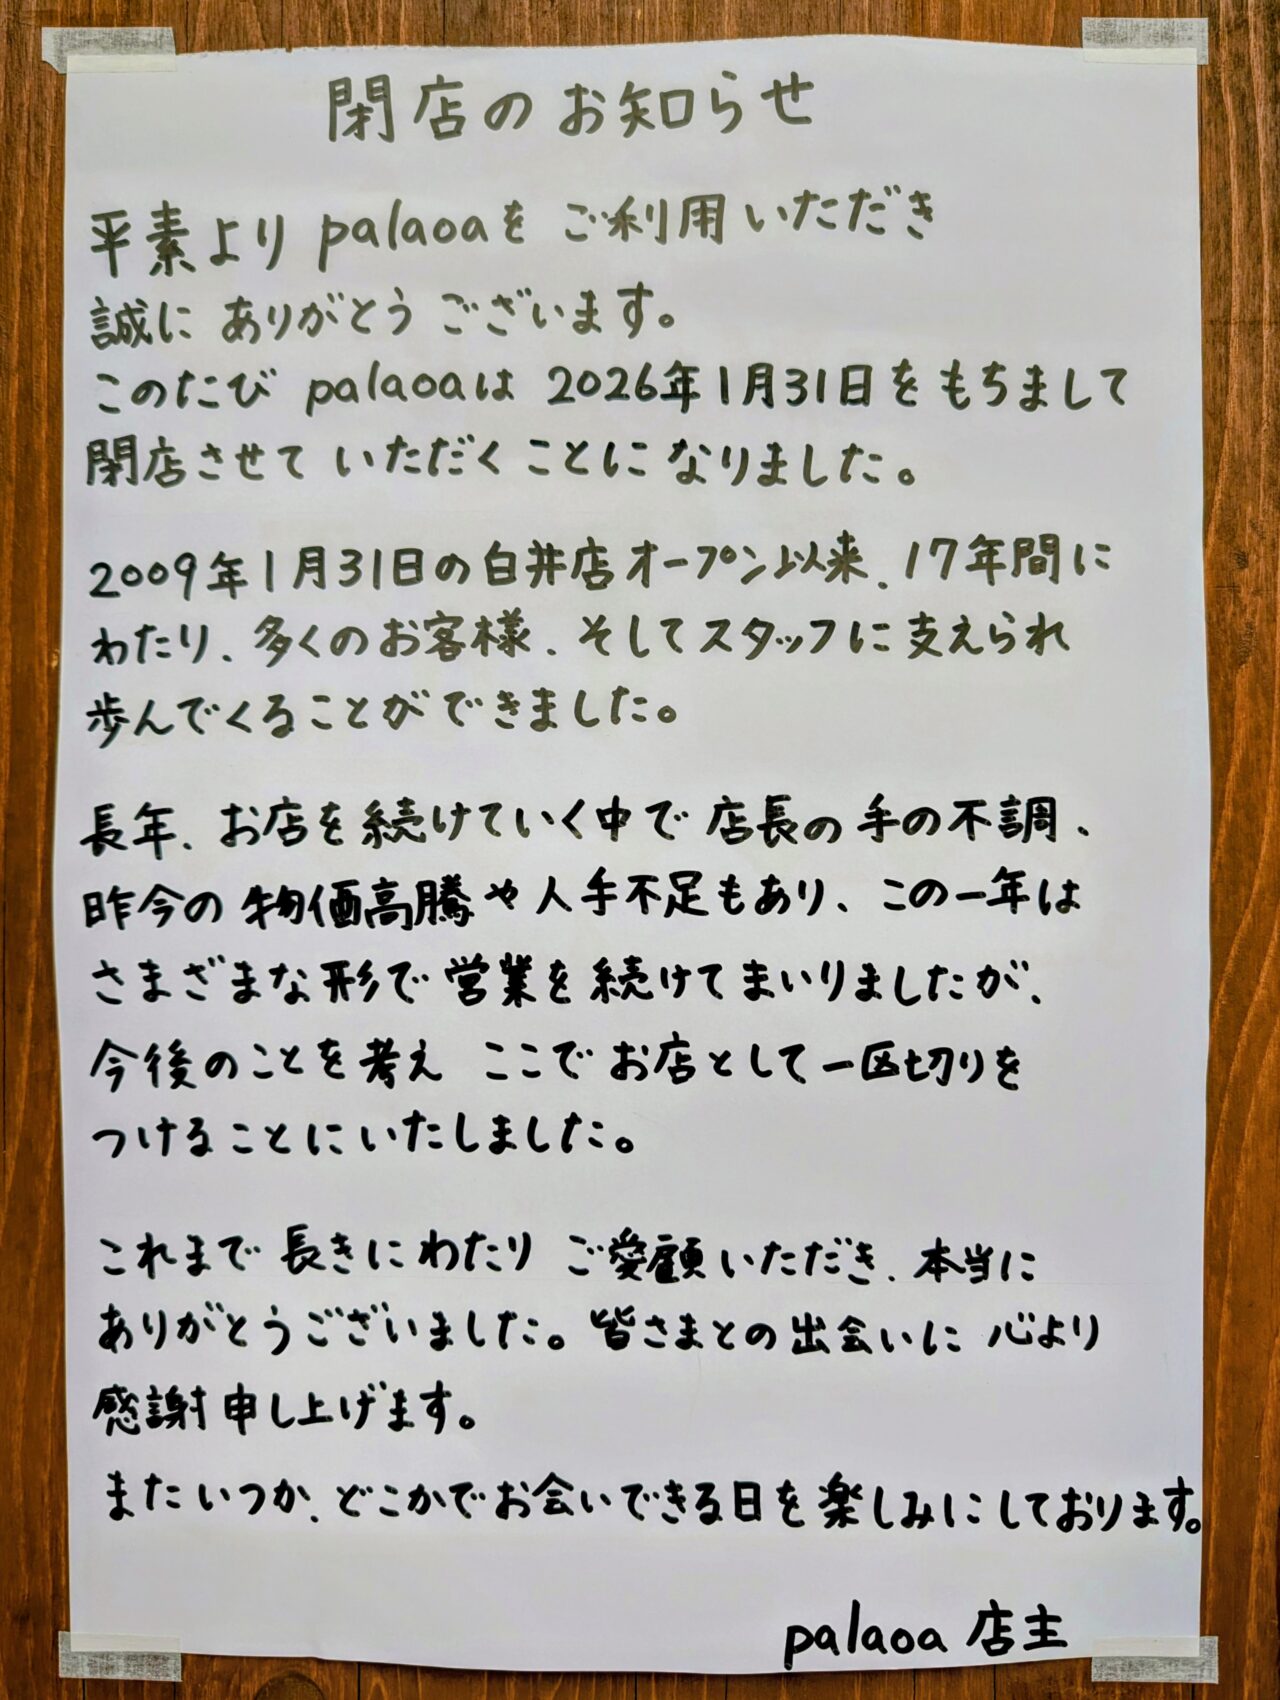 閉店のお知らせ
平素より palaoaを ご利用いただき
誠に ありがとう ございます。
このたび palaoaは 2026年1月31日をもちまして
閉店させて いただくことになりました。
2009年1月31日の白井店オープン以来、17年間に
わたり、多くのお客様、そしてスタッフに支えられ
歩んでくることができました。
長年、お店を続けていく中で 店長の手の不調、
昨今の物価高騰や人手不足もあり、この一年は
さまざまな形で営業を続けてまいりましたが、
今後のことを考え ここでお店として一区切りを
つけることにいたしました。
これまで長きにわたり ご愛顧いただき、本当に
ありがとうございました。皆さまとの出会いに 心より
感謝申し上げます。
またいつか、どこかでお会いできる日を楽しみにしております。
palaoa 店主